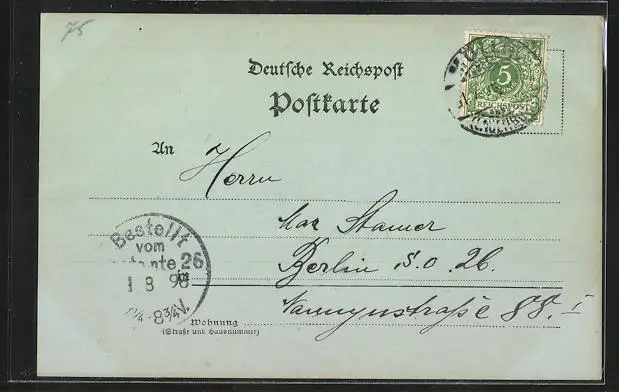 75
Deutsche Reichspost
Postkarte
5
REICHSPOST
An
Herrn
Max Stamer
Berlin S.O. 26.
Naunynstraße 88. I
Bestellt
vom
Postamte 26
1 8 98
7¼-8¾V.
Wohnung
(Straße und Hausnummer)